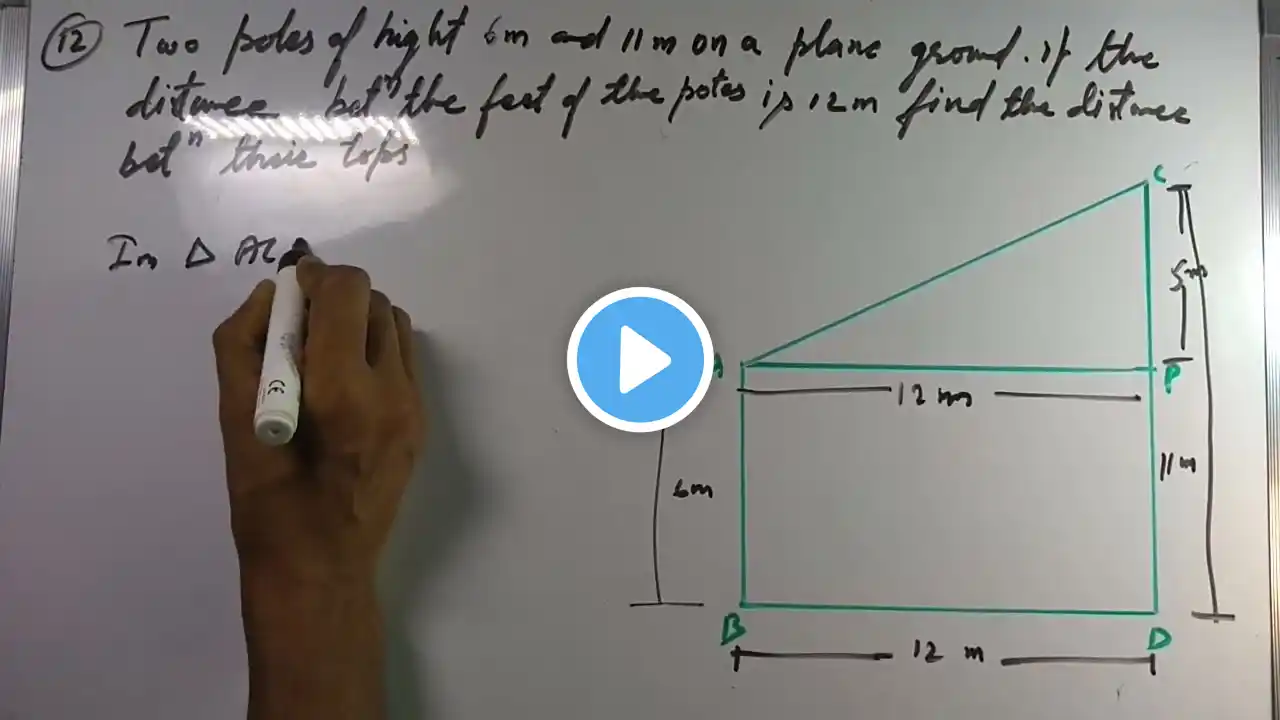 12 Two poles of hight 6m and 11m on a plane ground. if the
distance betⁿ the feet of the poles is 12m find the distance
betⁿ their tops
In Δ AC
C
5m
A
P
12 m
6m
11m
B
D
12 m
CE